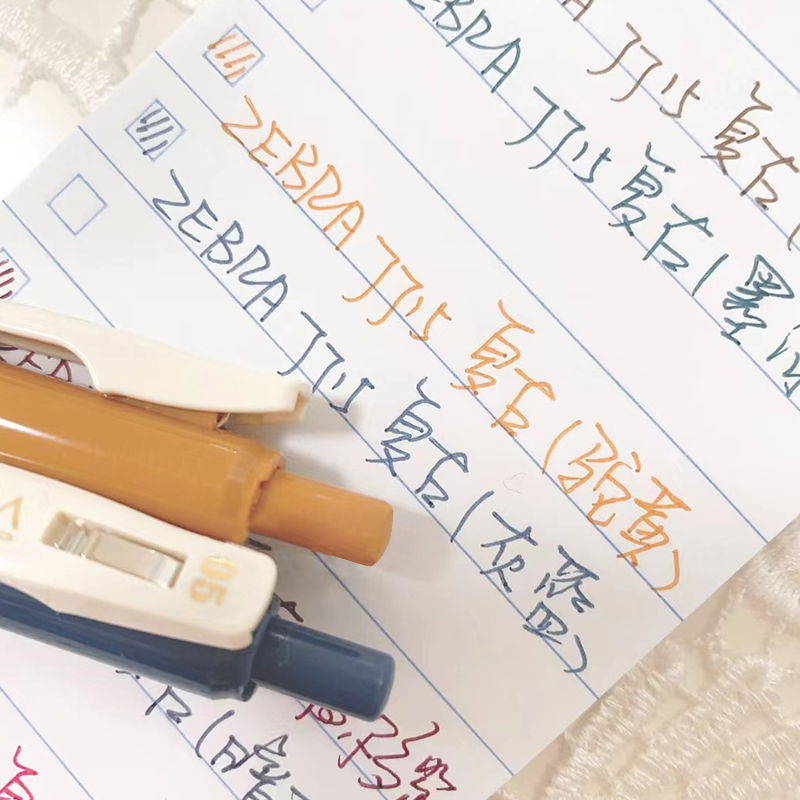 JJ15 复古(
ZEBRA JJ15 复古(墨
ZEBRA JJ15 复古(驼黄)
ZEBRA JJ15 复古(灰蓝)
05
(暗